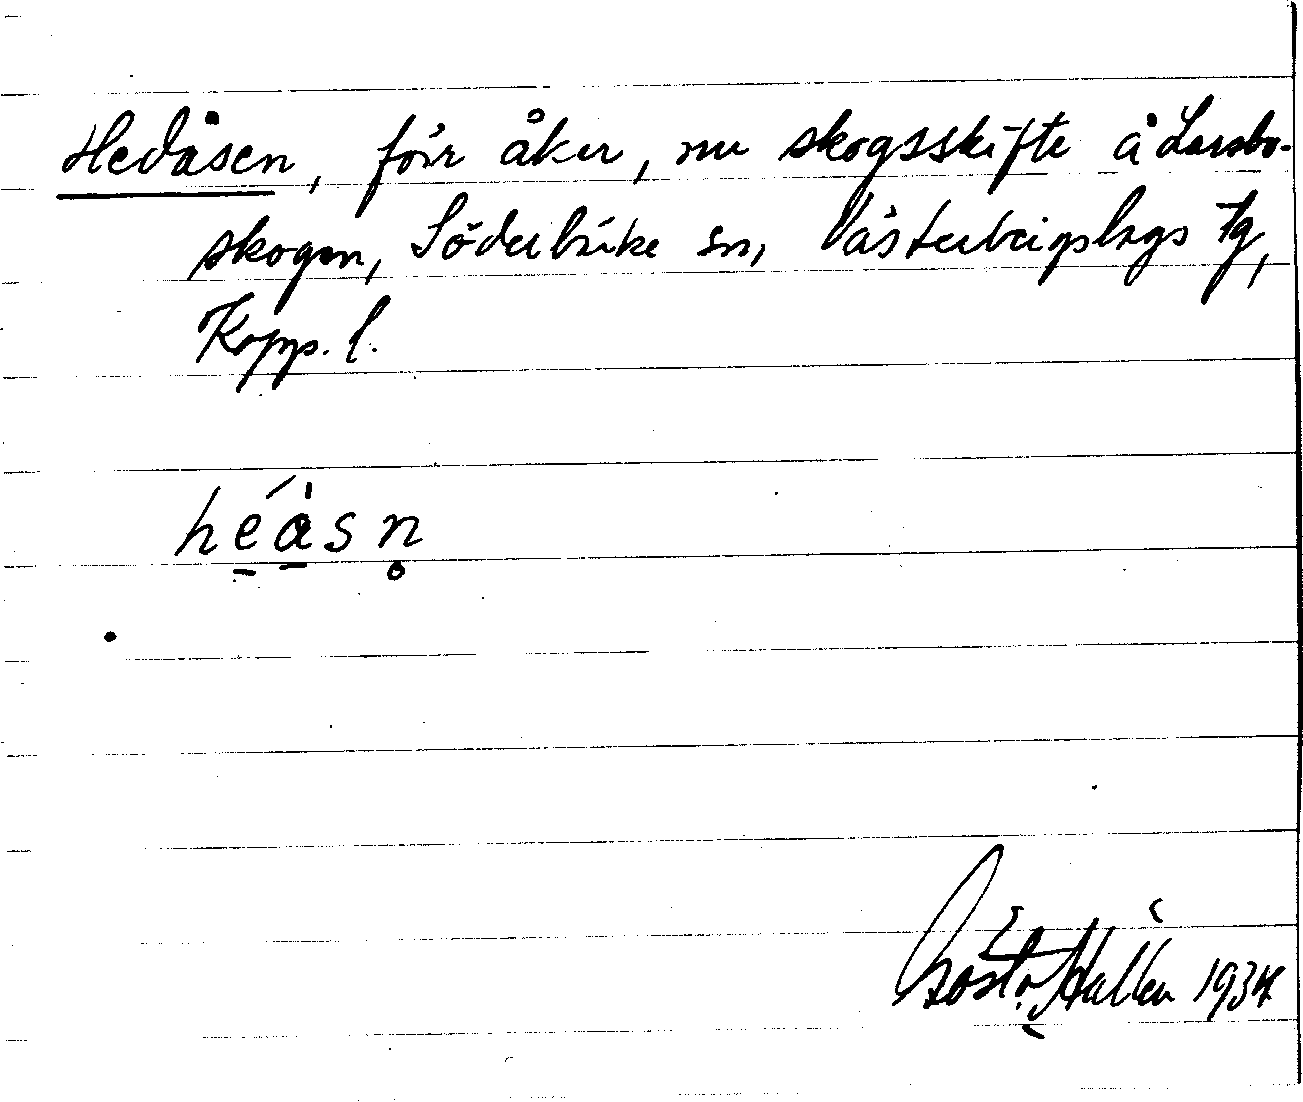 Hedåsen, förr åker, nu skogsskifte å Larsbo-
skogen, Söderbärke sn, Västerbergslags tg,
Kopp. l.
héåsn̥
Gösta Hallén 1934